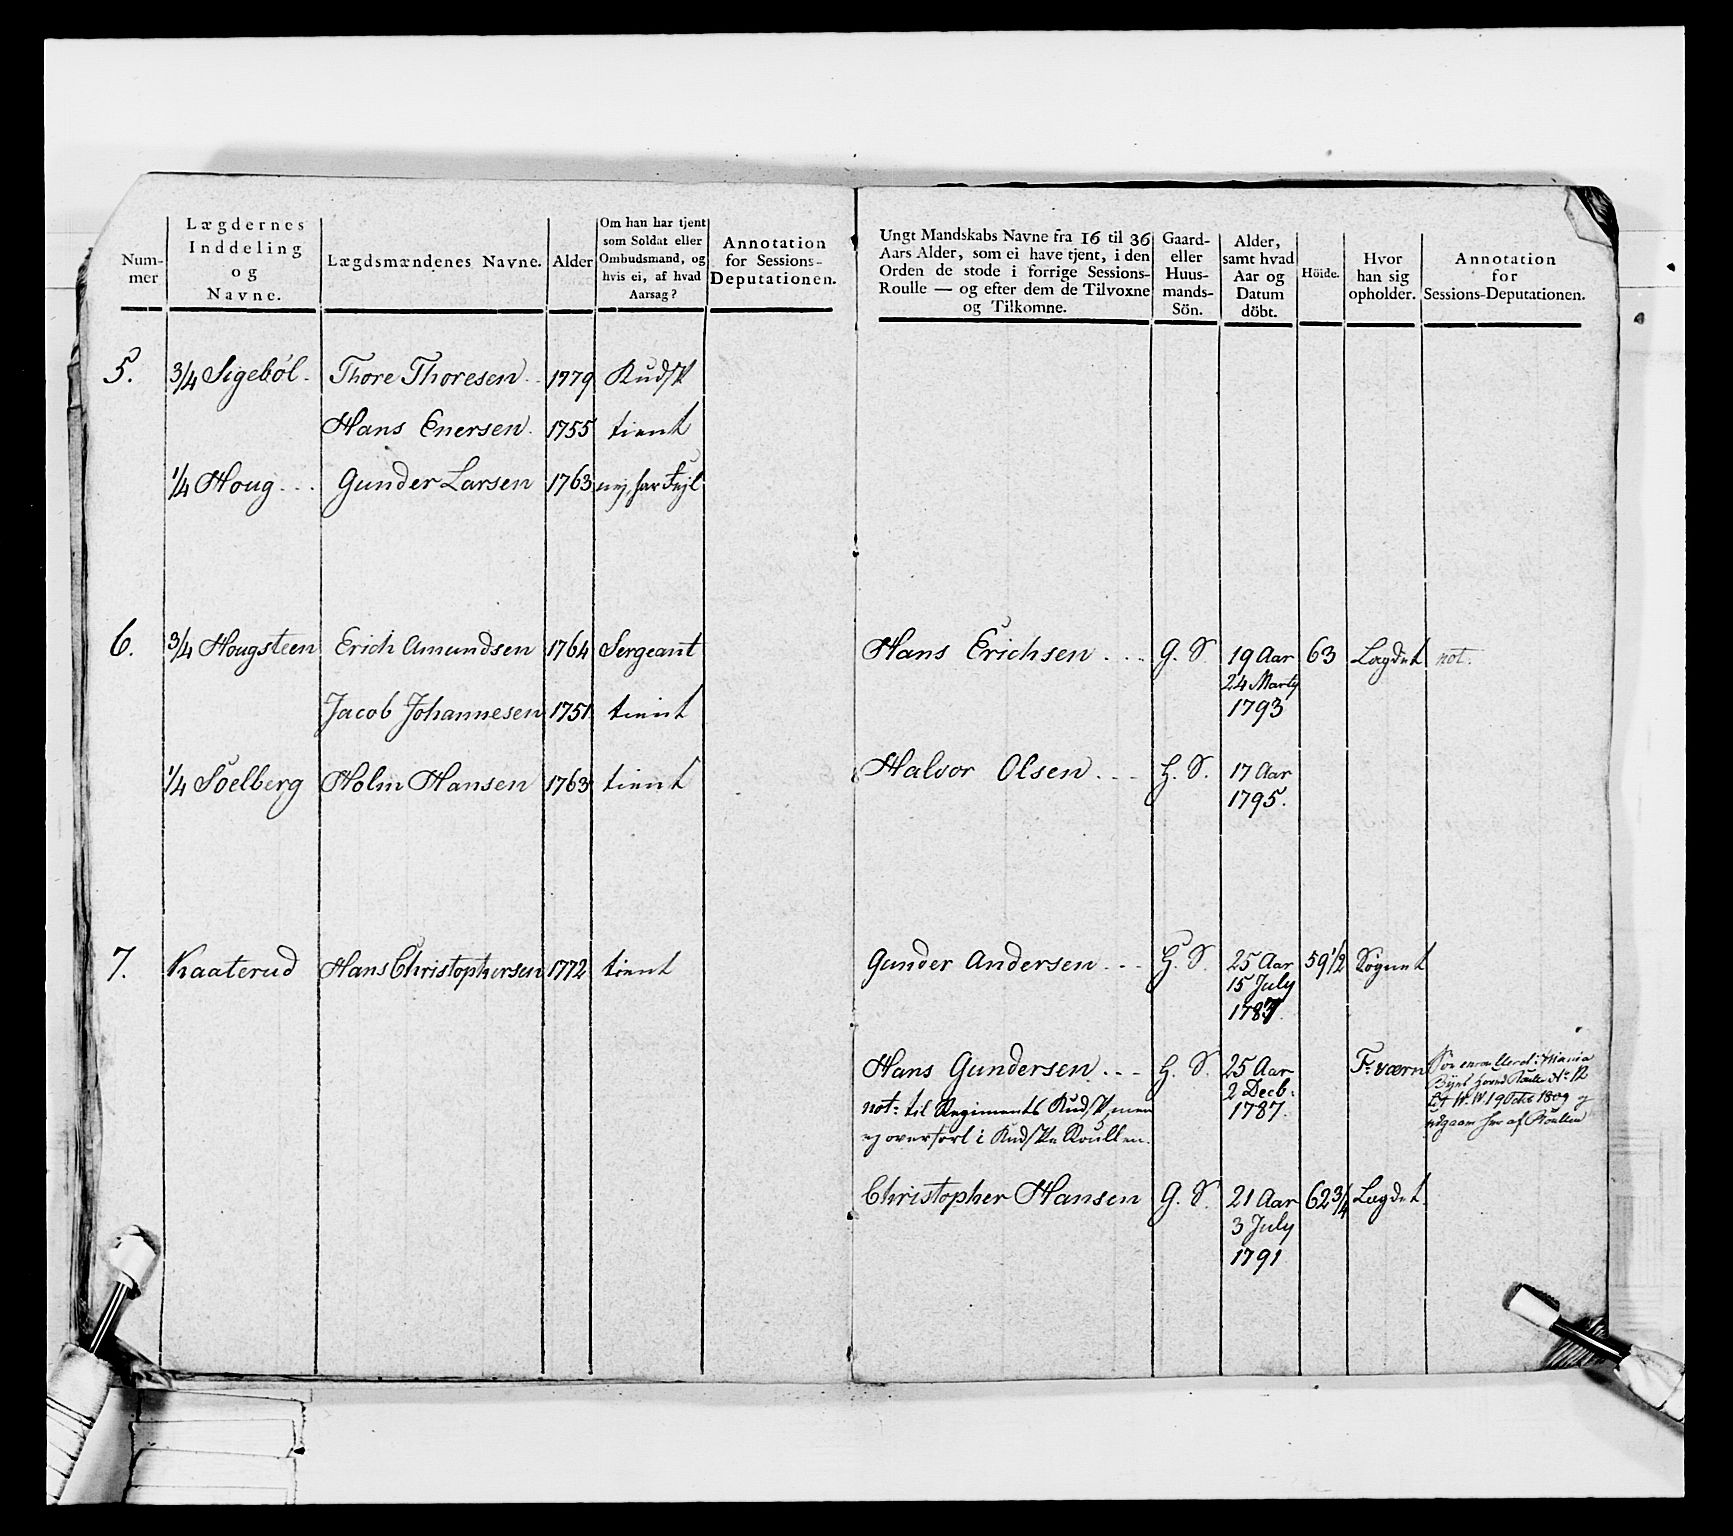 Num-
mer
Lægdernes
Inddeling
og
Navne.
Lægdsmændenes Navne.
Alder
Om han har tjent
som Soldat eller
Ombudsmand, og
hvis ei, af hvad
Aarsag?
Annotation
for Sessions-
Deputationen.
5. 3/4 Sigeböl. Thore Thoresen 1779 Kudsk
Hans Enersen. 1755 tient
1/4 Houg Gunder Larsen 1763 nej, har Fejl
6. 3/4 Hougsteen Erich Amundsen 1764 Sergeant
Jacob Johannesen 1751 tient
1/4 Soelberg Holm Hansen 1763 tient
7. Kaaterud Hans Christophersen 1772 tient
Ungt Mandskabs Navne fra 16 til 36
Aars Alder, som ei have tjent, i den
Orden de stode i forrige Sessions-
Roulle — og efter dem de Tilvoxne
og Tilkomne.
Gaard-
eller
Huus-
mands-
Sön.
Alder,
samt hvad
Aar og
Datum
döbt.
Höide.
Hvor
han sig
opholder.
Annotation
for
Sessions-Deputationen.
Hans Erichsen G. S. 19 Aar 63 Lægdet not.
24 Marty
1793
Halvor Olsen H. S. 17 Aar
1795.
Gunder Andersen H. S. 25 Aar 59 1/2 Sognet
15 July
1787.
Hans Gundersen H. S. 25 Aar
2 Decb:
1787.
not: til Regiments Kudsk, men
ej overfört i Kudske Roullen.
Söe
No 12
19 Octbr 1809
udgaaer her af Roullen
Christopher Hansen G. S. 21 Aar 62 3/4 Lægdet.
3 July
1791